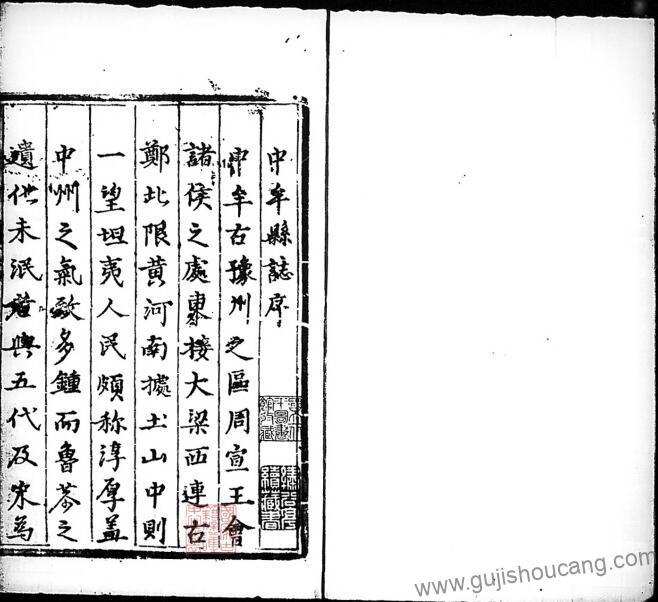 中牟縣誌序
中牟古豫州之區周宣王會
諸侯之處東接大梁西連古
鄭北限黄河南據土山中則
一望坦夷人民頗称淳厚盖
中州之氣歟多鍾而魯恭之
遺化未泯 與五代及宋為
www.gujishoucang.com